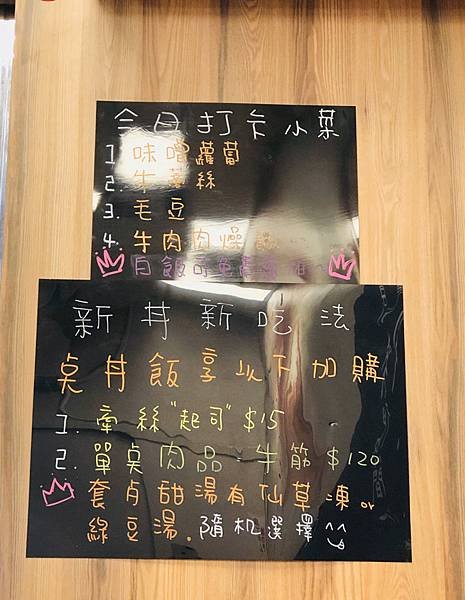 今日打卡小菜
1. 味噌蘿蔔
2. 絲
3. 毛豆
4. 牛肉肉燥飯
白飯可免費
新丼新吃法
桌丼飯享以下加購
1. 牽絲"起司" $15
2. 單桌肉品 牛筋 $120
套卢甜湯有仙草凍or
綠豆湯.隨机選擇